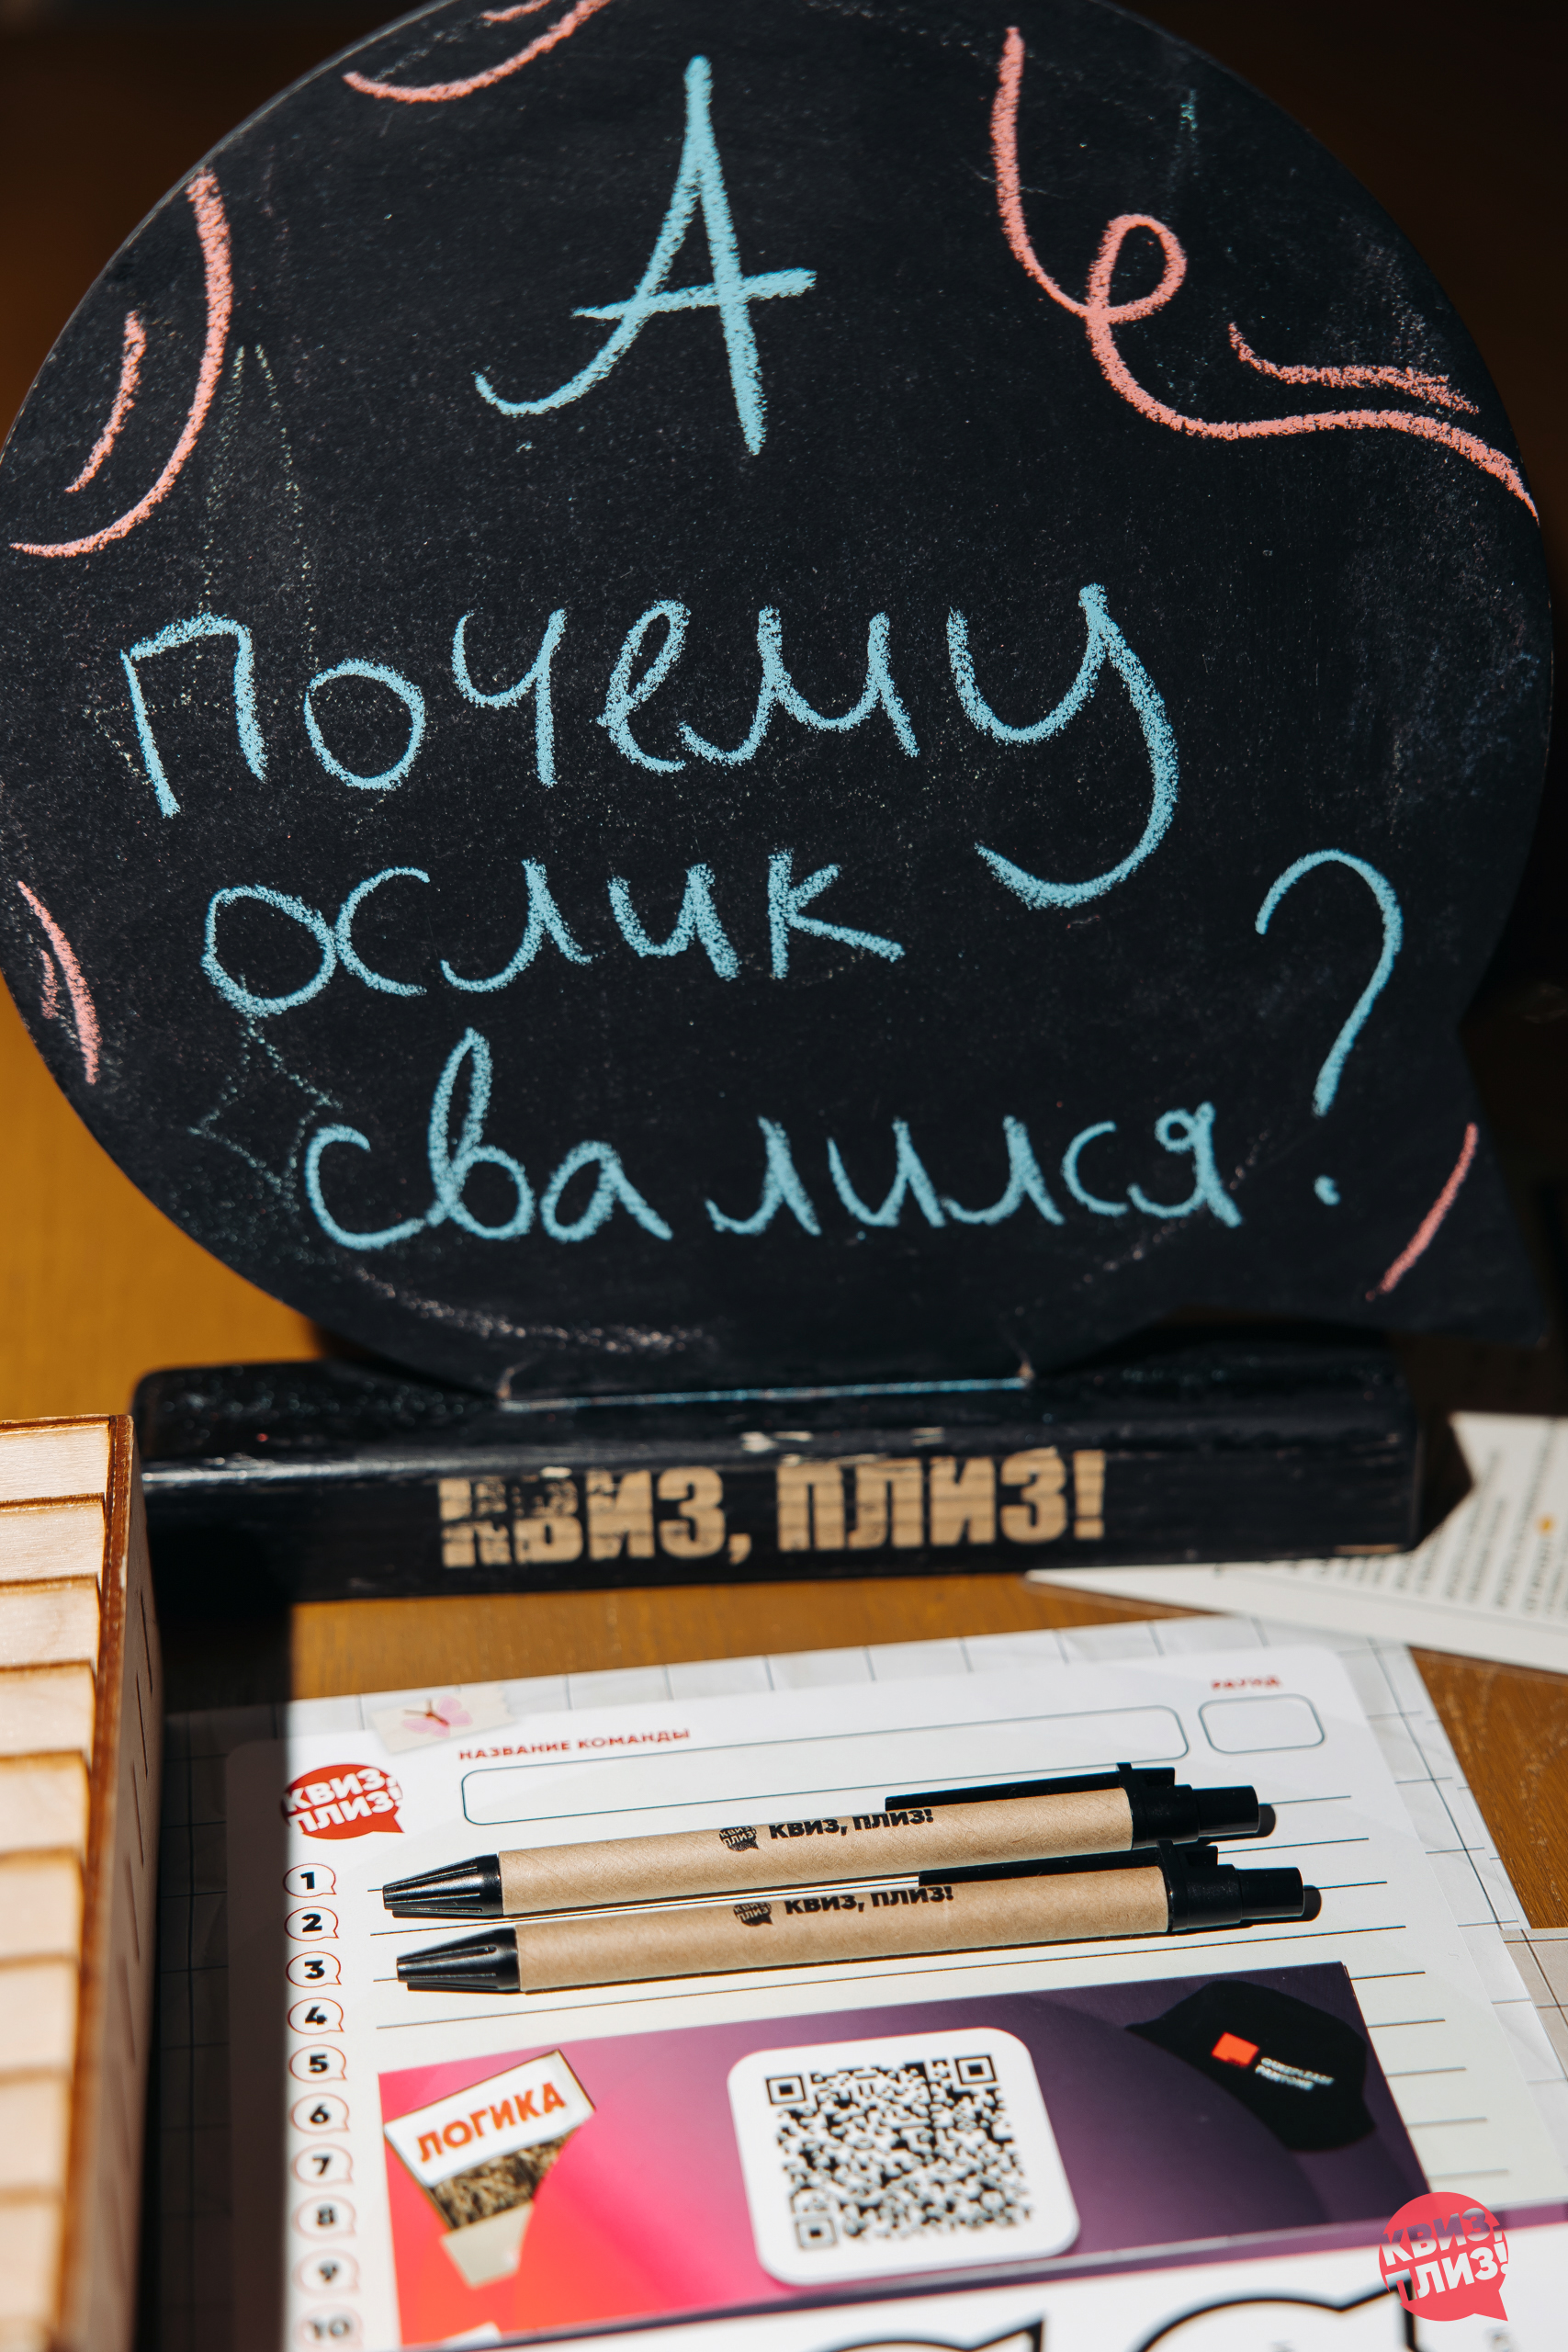 А
почему
ослик
свалился?
КВИЗ, ПЛИЗ!
РАУНД
НАЗВАНИЕ КОМАНДЫ
КВИЗ,
ПЛИЗ!
КВИЗ, ПЛИЗ!
КВИЗ, ПЛИЗ!
1
2
3
4
5
6
7
8
9
10
ЛОГИКА
QUIZPLEASE
PANTONE
КВИЗ,
ПЛИЗ!